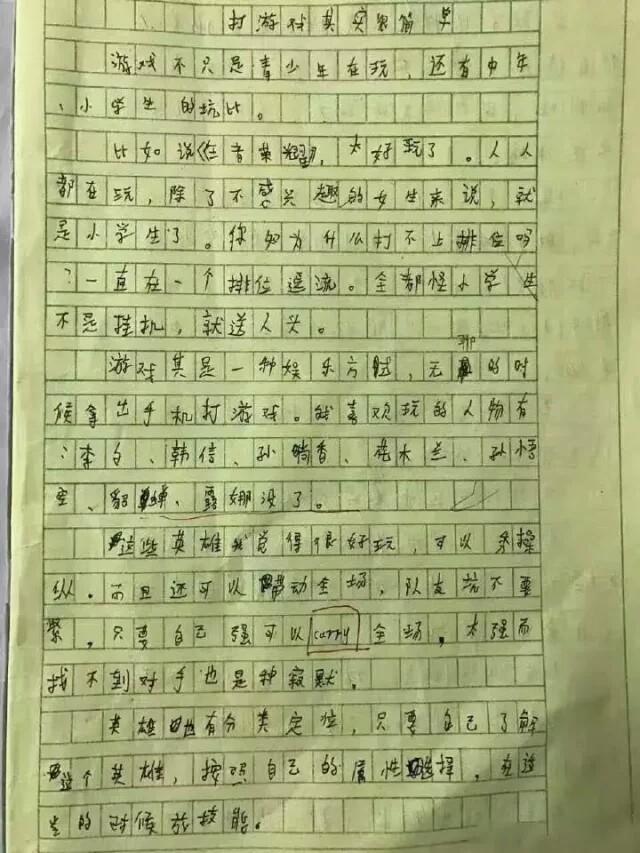 打游戏其实很简单
游戏不只是青少年在玩，还有中年
、小学生的玩比。
比如说《位者荣耀》，太好玩了。人人
都在玩，除了不感兴趣的女生来说，就
是小学生了。你知为什么打不上排位吗
？一直在一个排位逗流。全都怪小学生
不是挂机，就送人头。
游戏其是一种娱乐方赋，无聊的时
候拿出手机打游戏。我喜欢玩的人物有
：李白、韩信、孙尚香、花木兰、孙悟
空、貂蝉、露娜没了。
这些英雄我觉得很好玩，可以来操
纵。而且还可以带动全场，队友坑不要
紧，只要自己强可以carry全场。太强而
找不到对手也是种寂默。
英雄也有分类定位，只要自己了解
这个英雄，按照自己的属性选择，在逃
生的时候放技能。